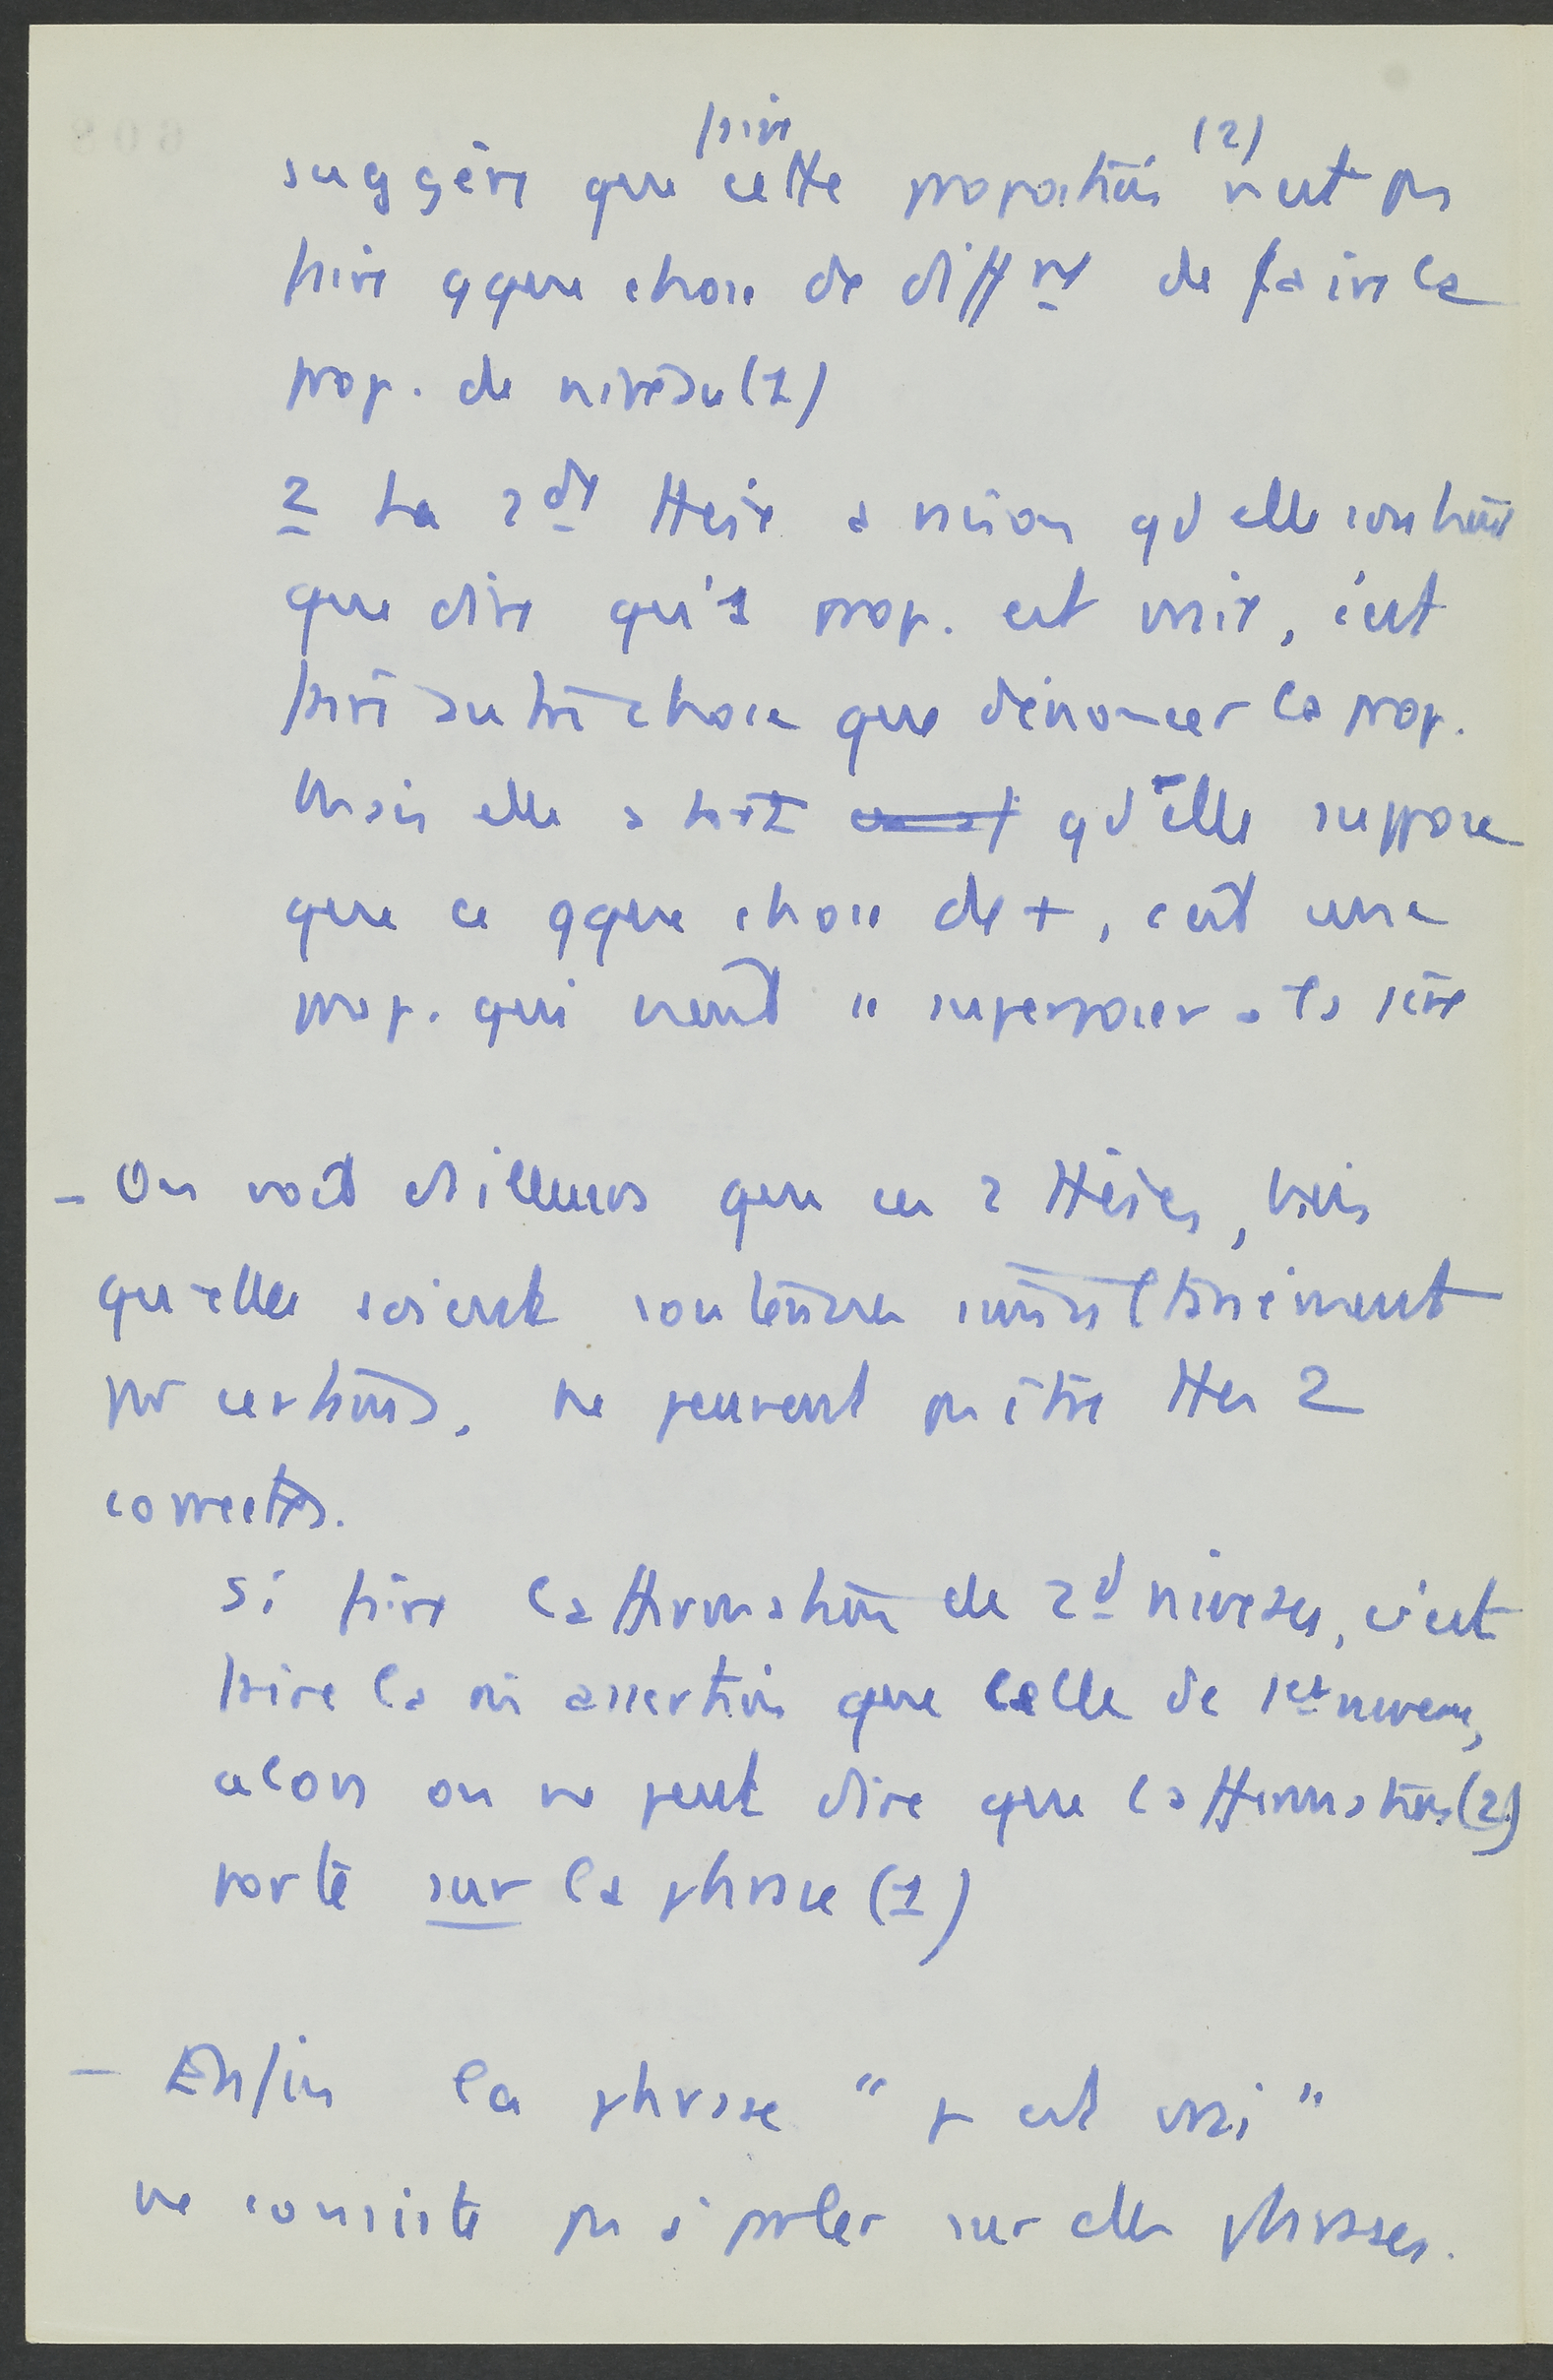 faire (2)
suggère que cette proposition n'est pas
faire qque chose de diffnt de faire la
prop. de niveau (1)
2 La 2de thèse a raison qd elle soutient
que dire qu'1 prop. est vraie, c'est
faire autre chose que d'énoncer la prop.
Mais elle a tort qd elle suppose
que ce qque chose de +, c'est une
prop. qui vient se superposer à la 1ère
- On voit d'ailleurs que ces 2 thèses, bien
qu'elles soient soutenues simultanément
par certains, ne peuvent pas être ttes 2
correctes.
Si faire l'affirmation de 2d niveau, c'est
faire la m̂ assertion que celle de 1er niveau,
alors on ne peut dire que l'affirmation (2)
porte sur la phrase (1)
- Enfin la phrase "p est vrai"
ne consiste pas à parler sur des phrases.